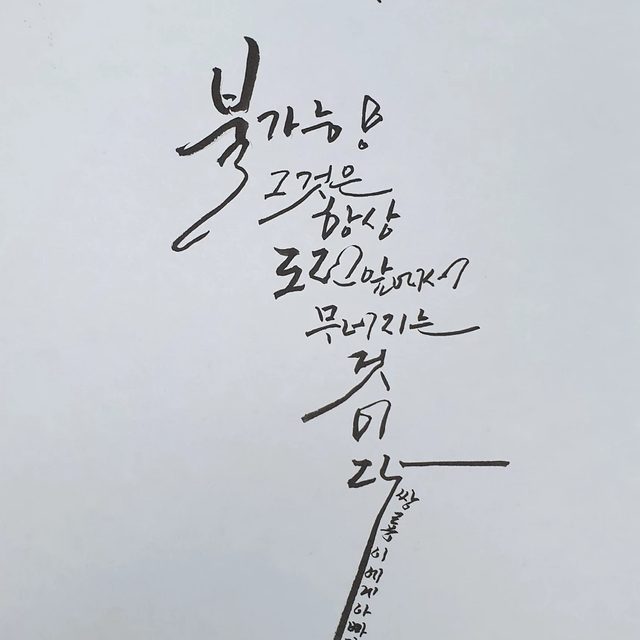 불가능!
그것은
항상
도전앞에서
무너지는
것
이
다
쌍룡이에게아빠